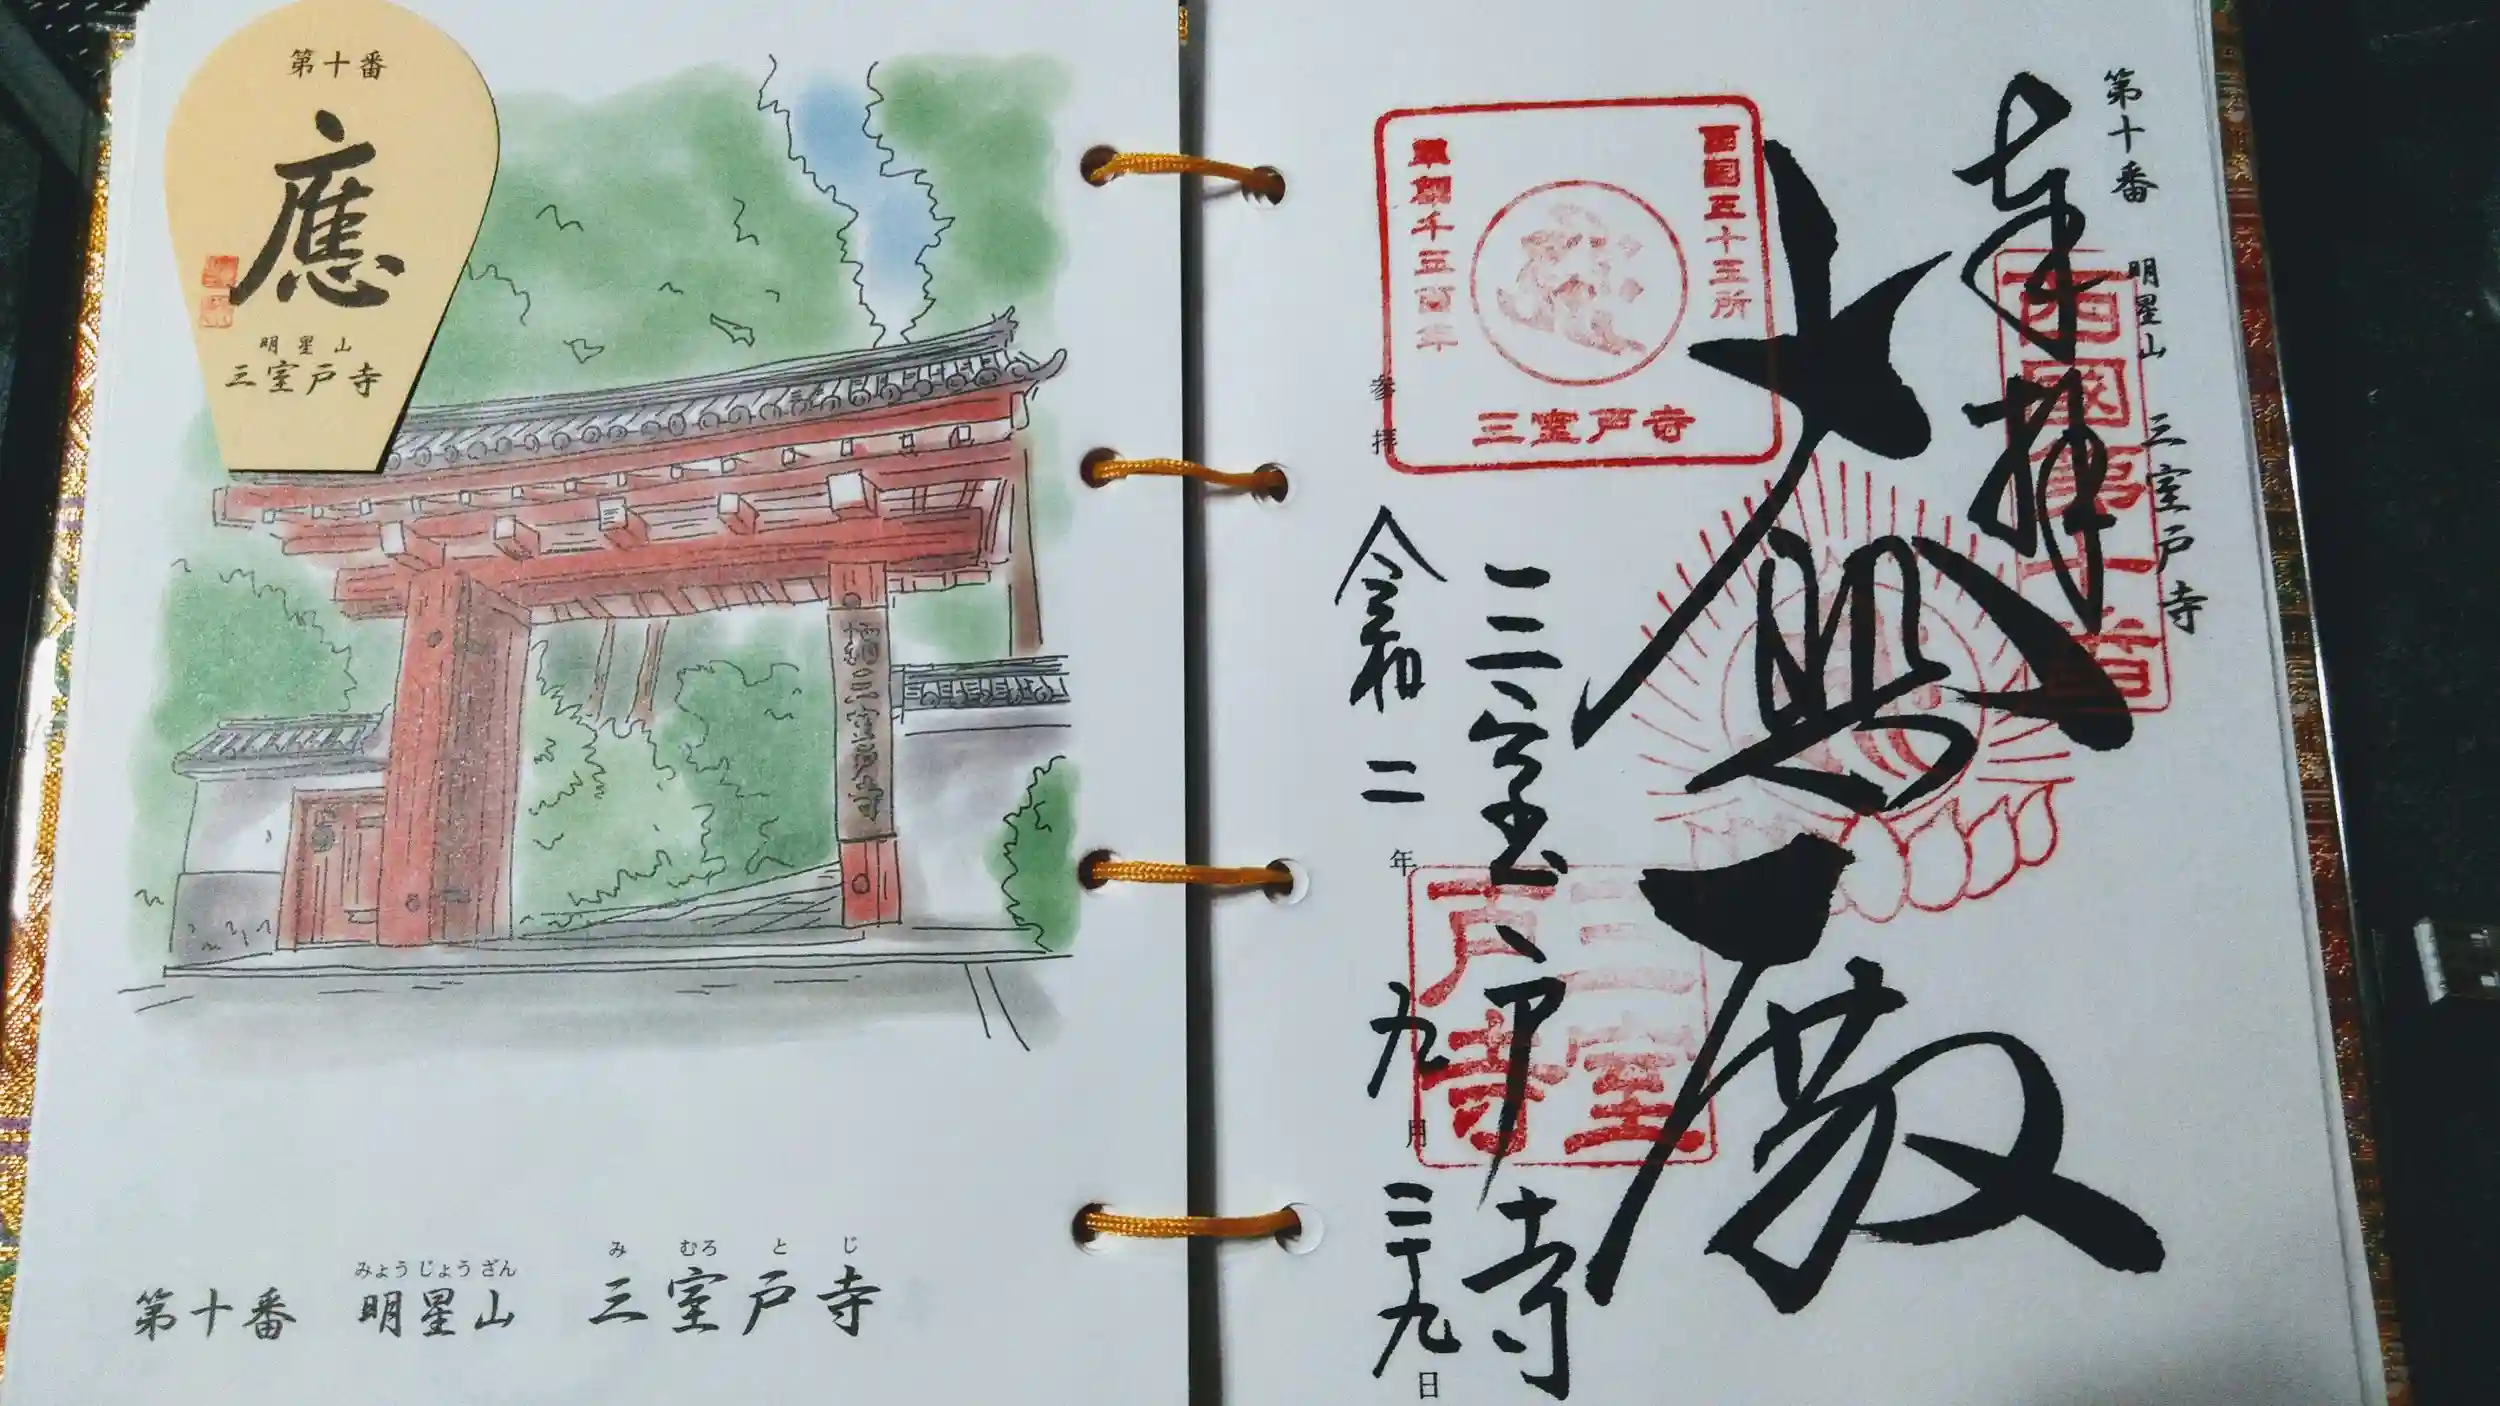 第十番
應
明星山
三室戸寺
西国三室戸寺
第十番 明星山 三室戸寺
みょうじょうざん み むろ と じ
第十番 明星山 三室戸寺
奉拝
西國第十番
大悲殿
三室戸寺
西国三十三所
草創千三百年
三室戸寺
三室戸寺
参拝
令和二年九月二十九日